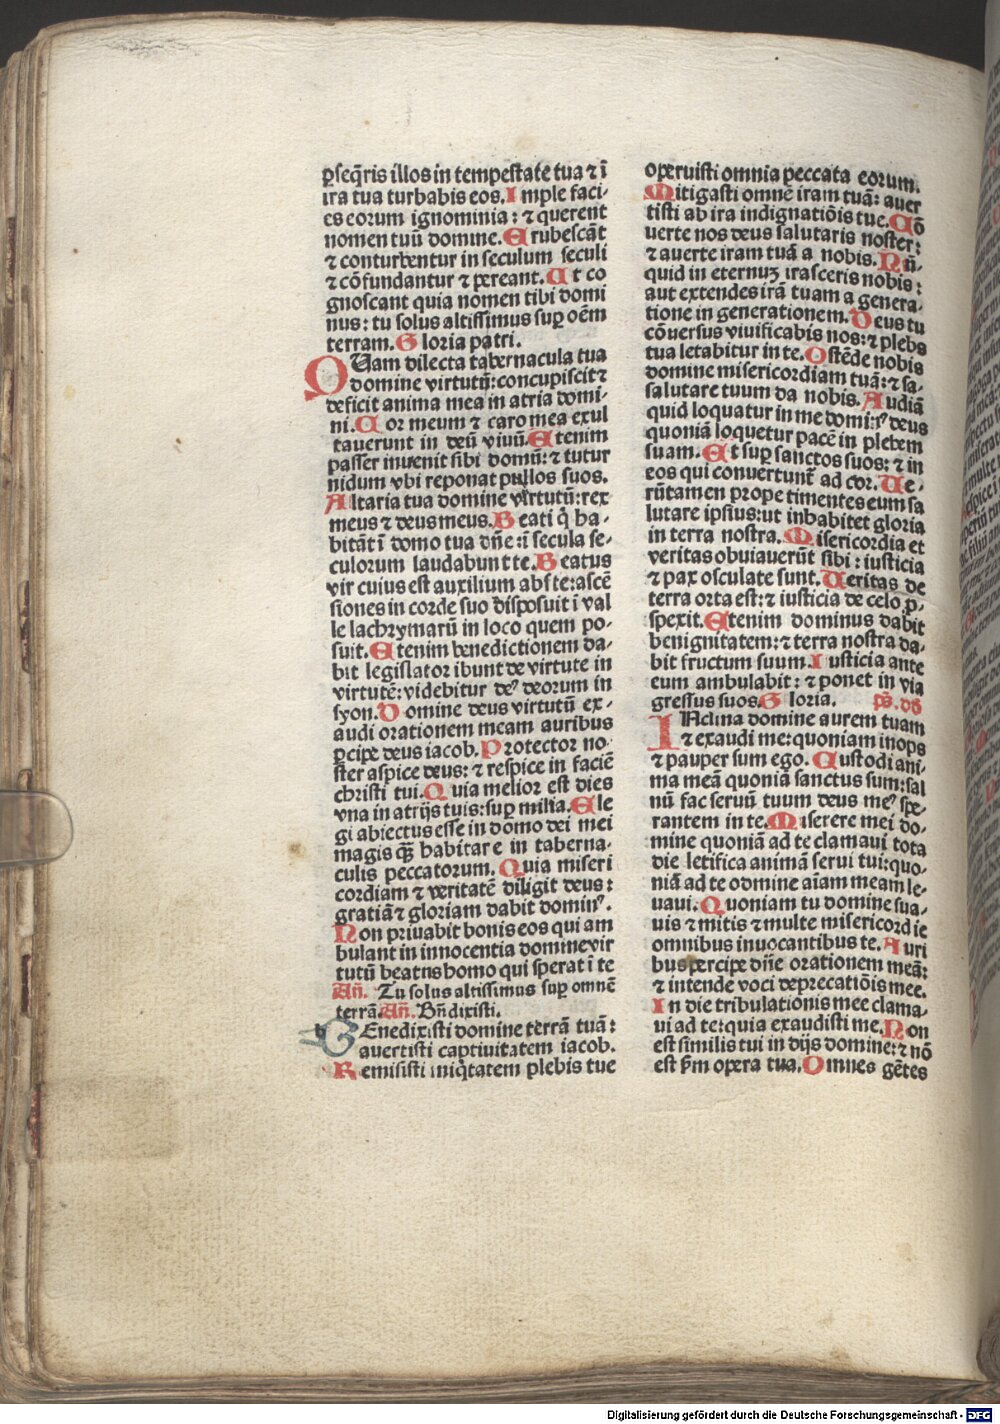 ꝑseq̃ris illos in tempestate tua ⁊ ĩ
ira tua turbabis eos. Imple faci-
es eorum ignominia: ⁊ querent
nomen tuũ domine. Erubescãt
⁊ conturbentur in seculum seculi
⁊ cõfundantur ⁊ pereant. Et co
gnoscant quia nomen tibi domi
nus: tu solus altissimus sup̱ oẽm
terram. Gloria patri.
QUam dilecta tabernacula tua
domine virtutũ: concupiscit ⁊
deficit anima mea in atria domi-
ni. Cor meum ⁊ caro mea exul
tauerunt in deũ viuũ. Etenim
passer inuenit sibi domũ: ⁊ turtur
nidum vbi reponat pullos suos.
Altaria tua domine virtutũ: rex
meus ⁊ deus meus. Beati q̃ ha-
bitãt ĩ domo tua dñe: ĩ secula se-
culorum laudabunt te. Beatus
vir cuius est auxilium abs te: ascẽ
siones in corde suo disposuit ĩ val
le lachrymarũ in loco quem po-
suit. Etenim benedictionem da-
bit legislator ibunt de virtute in
virtutẽ: videbitur deꝰ deorum in
syon. Domine deus virtutũ ex-
audi orationem meam auribus
ꝑcipe deus iacob. Protector no-
ster aspice deus: ⁊ respice in faciẽ
christi tui. Quia melior est dies
vna in atrijs tuis: sup̱ milia. Ele
gi abiectus esse in domo dei mei
magis q̃ȝ habitare in taberna-
culis peccatorum. Quia miseri
cordiam ⁊ veritatẽ diligit deus:
gratiã ⁊ gloriam dabit dominꝰ.
Non priuabit bonis eos qui am
bulant in innocentia domine vir
tutũ beatus homo qui sperat ĩ te
Añ. Tu solus altissimus sup̱ omnẽ
terrã. Añ. Bñdixisti.
BEnedixisti domine terrã tuã:
auertisti captiuitatem iacob.
Remisisti iniq̃tatem plebis tue
operuisti omnia peccata eorum.
Mitigasti omnẽ iram tuã: auer
tisti ab ira indignatiõis tue. Cõ
uerte nos deus salutaris noster:
⁊ auerte iram tuã a nobis. Nũ-
quid in eternuȝ irasceris nobis:
aut extendes irã tuam a genera-
tione in generationem. Deus tu
cõuersus viuificabis nos: ⁊ plebs
tua letabitur in te. Ostẽde nobis
domine misericordiam tuã: ⁊ sa-
lutare tuum da nobis. Audiã
quid loquatur in me domiꝰ deus
quoniã loquetur pacẽ in plebem
suam. Et sup̱ sanctos suos: ⁊ in
eos qui conuertunt̃ ad cor. Ue-
rũtamen prope timentes eum sa
lutare ipsius: ut inhabitet gloria
in terra nostra. Misericordia et
veritas obuiauerũt sibi: iusticia
⁊ pax osculate sunt. Ueritas de
terra orta est: ⁊ iusticia de celo p̱-
spexit. Etenim dominus dabit
benignitatem: ⁊ terra nostra da-
bit fructum suum. Iusticia ante
eum ambulabit: ⁊ ponet in via
gressus suos. Gloria. p̃s. dd
INclina domine aurem tuam
⁊ exaudi me: quoniam inops
⁊ pauper sum ego. Custodi ani-
ma meã quoniã sanctus sum: sal
nũ fac seruũ tuum deus meꝰ spe-
rantem in te. Miserere mei do-
mine quoniã ad te clamaui tota
die letifica animã serui tui: quo-
niã ad te odmine aĩam meam le-
uaui. Quoniam tu domine sua-
uis ⁊ mitis ⁊ multe misericordie
omnibus inuocantibus te. Auri
bus percipe dñe orationem meã:
⁊ intende voci deprecatiõis mee.
In die tribulationis mee clama-
ui ad te: quia exaudisti me. Non
est similis tui in dijs domine: ⁊ nõ
est p̃m opera tua. Omnes gẽtes
Digitalisierung gefördert durch die Deutsche Forschungsgemeinschaft - DFG